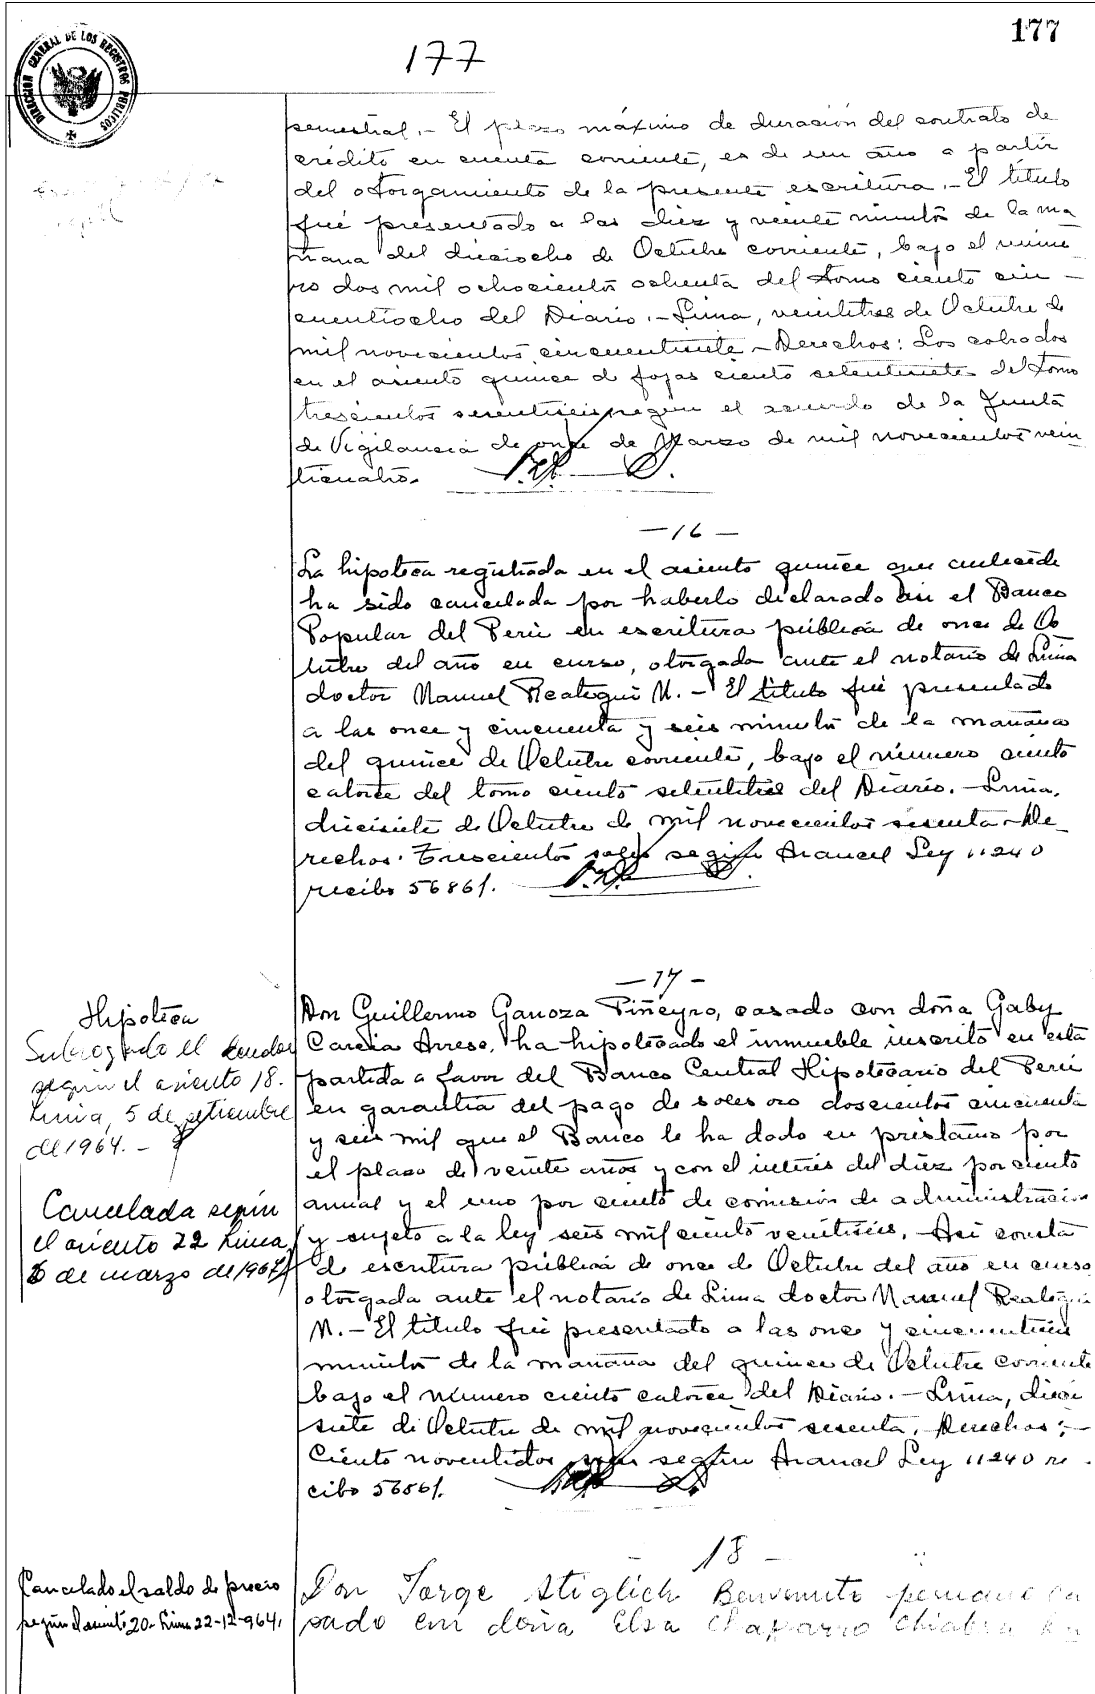 177
177
DIRECCION GENERAL DE LOS REGISTROS PUBLICOS
semestral.- El plazo máximo de duración del contrato de
crédito en cuenta corriente, es de un año a partir
del otorgamiento de la presente escritura.- El título
fué presentado a las diez y veinte minutos de la ma
ñana del dieciocho de Octubre corriente, bajo el núme
ro dos mil ochocientos ochenta del tomo ciento cin-
cuentiocho del Diario.- Lima, veintitres de Octubre de
mil novecientos cincuentisiete - Derechos: Los cobrados
en el asiento quince de fojas ciento setentisiete del tomo
trescientos según el acuerdo de la Junta
de Vigilancia de once de Marzo de mil novecientos vein
ticuatro.
-16-
La hipoteca registrada en el asiento quince que antecede
ha sido cancelada por haberlo declarado así el Banco
Popular del Perú en escritura pública de once de Oc
tubre del año en curso, otorgada ante el notario de Lima
doctor Manuel Reategui M.- El título fué presentado
a las once y cincuenta y seis minutos de la mañana
del quince de Octubre corriente, bajo el número ciento
catorce del tomo ciento setentitres del Diario.- Lima,
diecisiete de Octubre de mil novecientos sesenta - De
rechos: Trescientos soles según Arancel Ley 11240
recibo 56861.
-17-
Hipoteca
Subrogado el deudor
según el asiento 18.
Lima, 5 de setiembre
de 1964.-
Cancelada según
el asiento 22 Lima,
6 de marzo de 1967
Don Guillermo Ganoza Piñeyro, casado con doña Gaby
Garcia Arrese, ha hipotecado el inmueble inscrito en esta
partida a favor del Banco Central Hipotecario del Perú
en garantía del pago de soles oro doscientos cincuenta
y seis mil que el Banco le ha dado en préstamo por
el plazo de veinte años y con el interés del diez por ciento
anual y el uno por ciento de comisión de administración
y sujeto a la ley seis mil ciento veintiseis. Así consta
de escritura pública de once de Octubre del año en curso
otorgada ante el notario de Lima doctor Manuel Reategui
M.- El título fué presentado a las once y cincuentiseis
minutos de la mañana del quince de Octubre corriente
bajo el número ciento catorce del Diario.- Lima, dieci
siete de Octubre de mil novecientos sesenta. Derechos:-
Ciento noventidos soles según Arancel Ley 11240 re
cibo 56861.
- 18 -
Cancelado el saldo de precio
según el asiento 20. Lima 22-12-964.
Don Jorge Stiglich Benvenuto peruano ca
sado con doña Elsa Chaparro Chiabra